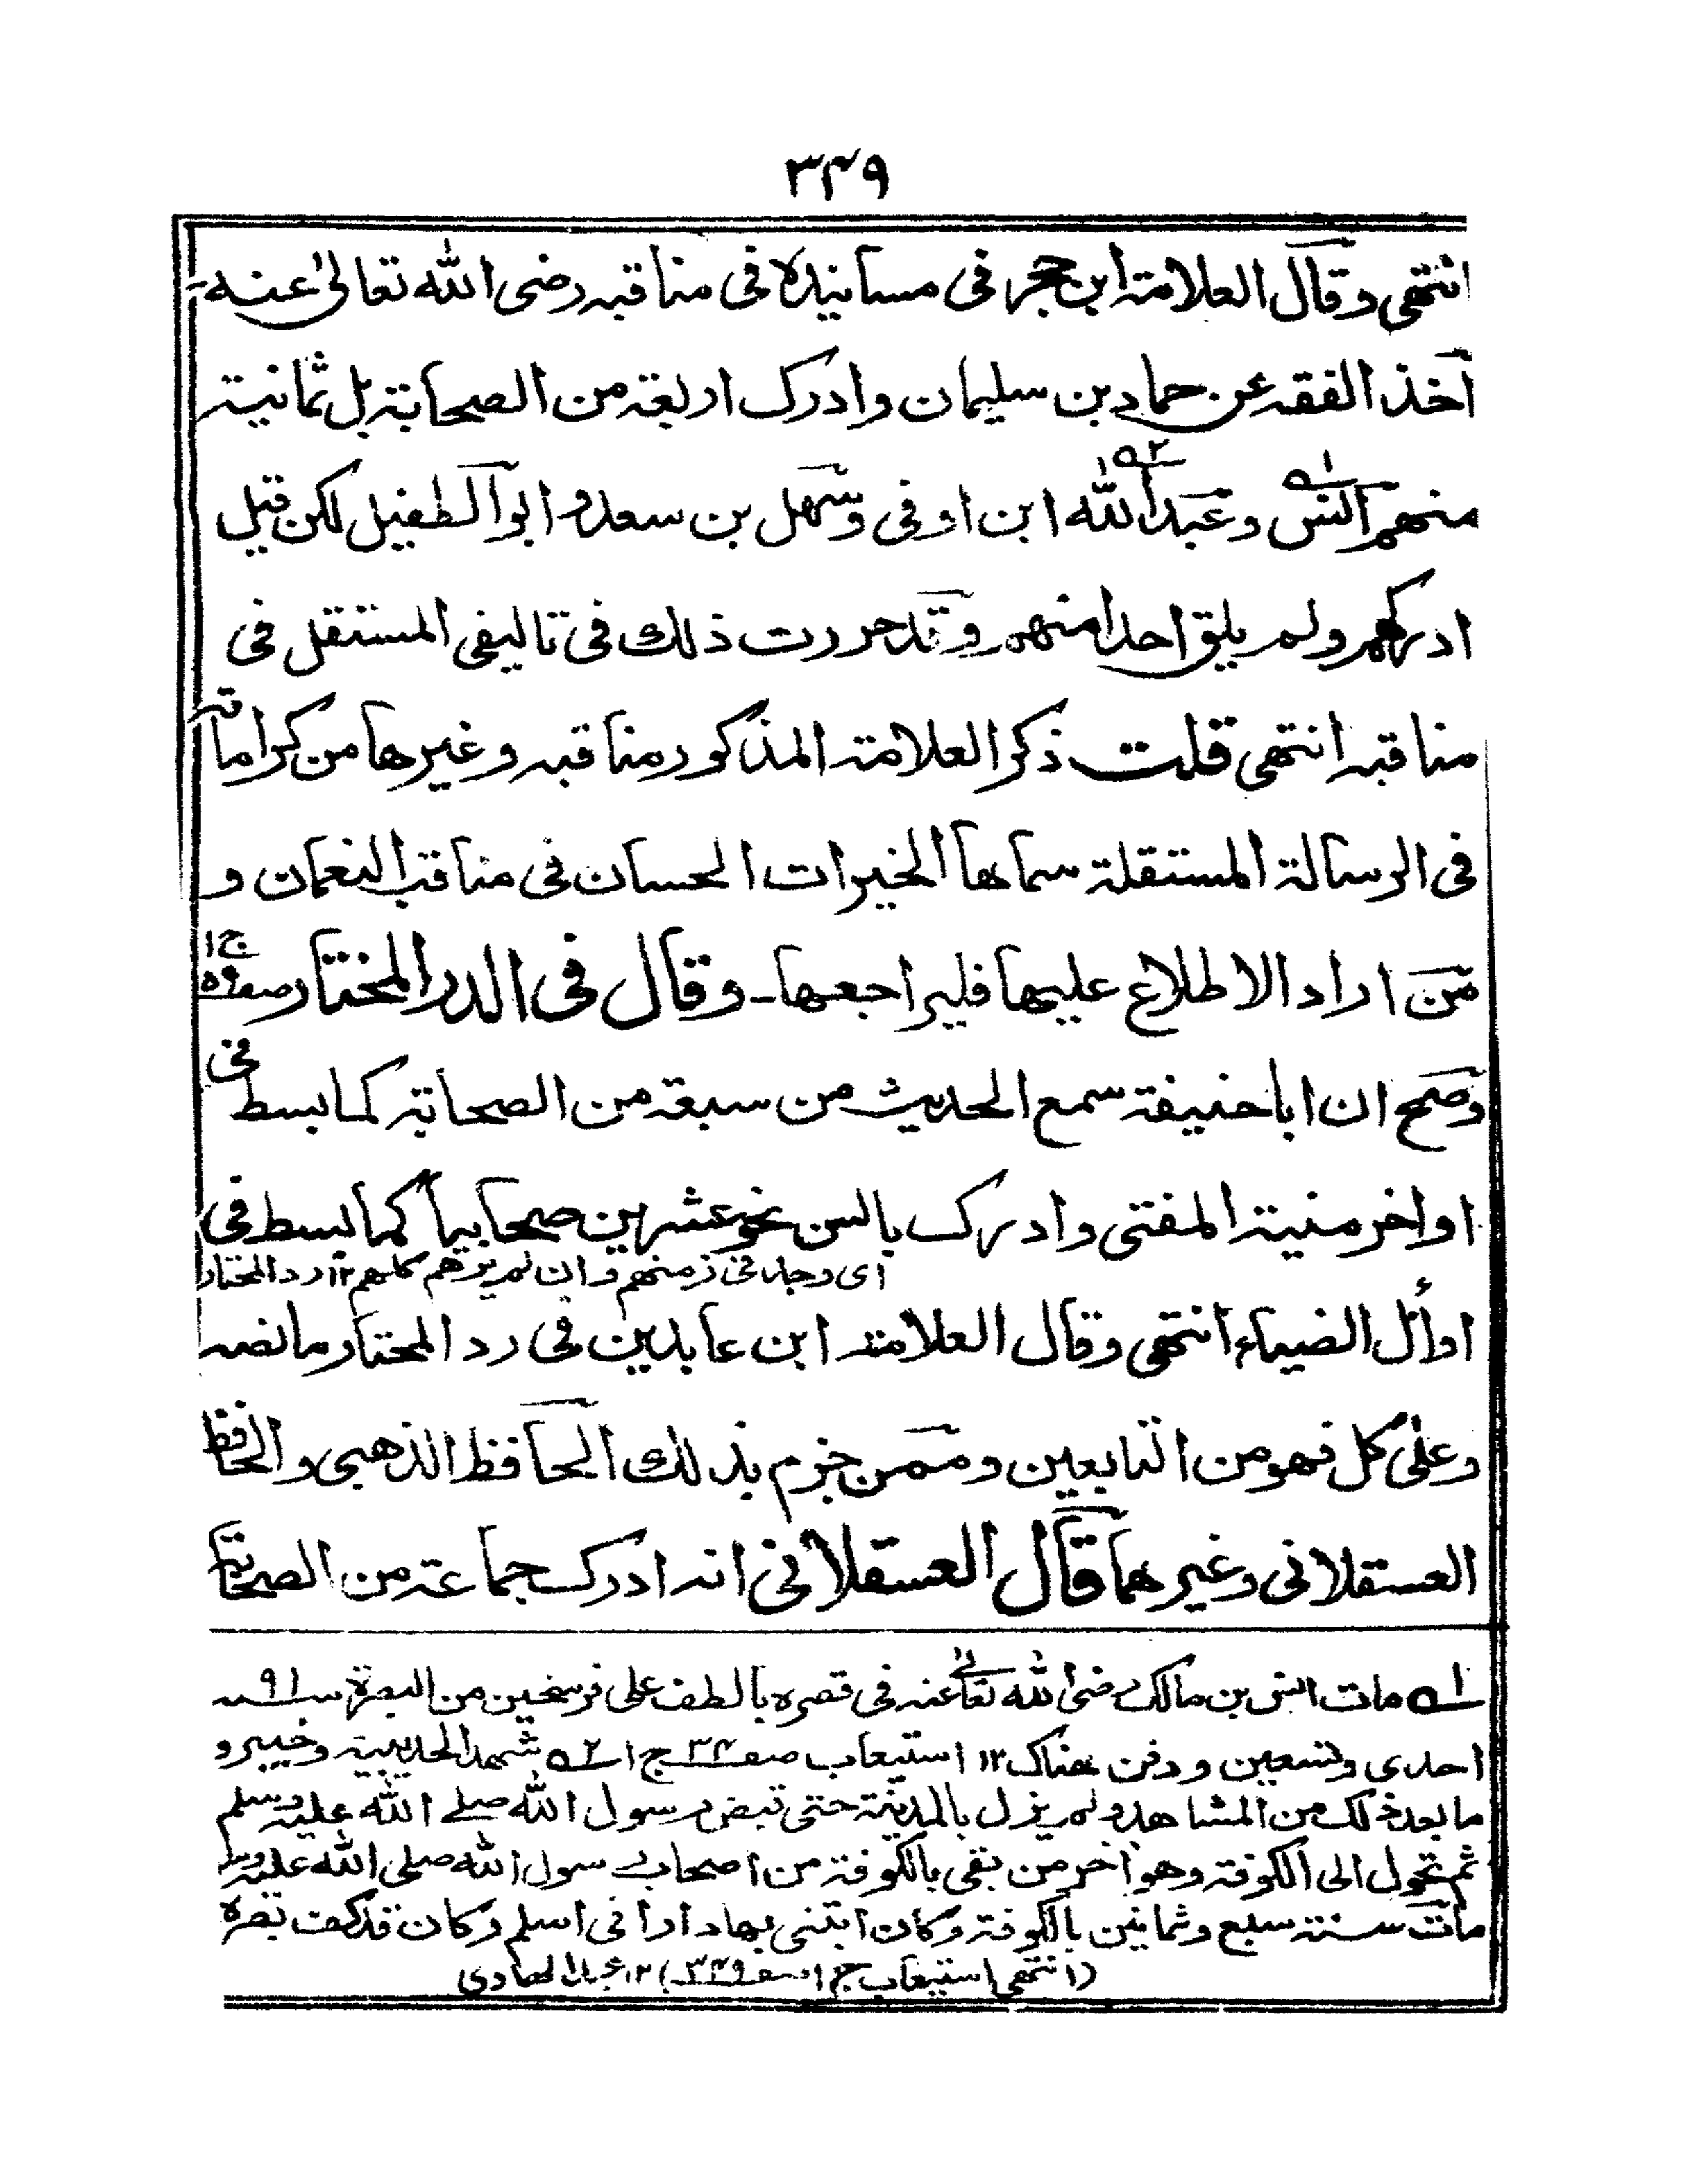 ۳۴۹
انتهى وقال العلامة ابن حجر فى مسانيده فى مناقبه رضى الله تعالىٰ عنه-
أخذ الفقه عن حماد بن سليمان وادرك اربعة من الصحابة بل ثمانية
منهم انس وعبد الله ابن اوفى وسهل بن سعد وابو الطفيل لكن قيل
ادركهم ولم يلق احدا منهم وقد حررت ذلك فى تاليفى المستقل فى
مناقبه انتهى قلت ذكر العلامة المذكور مناقبه وغيرها من كراماته
فى الرسالة المستقلة سماها الخيرات الحسان فى مناقب النعمان و
من اراد الاطلاع عليها فليراجعها- وقال فى الدر المختار ج۱
وصح ان ابا حنيفة سمع الحديث من سبعة من الصحابة كما بسط فى
اواخر منية المفتى وادرك بالسن نحو عشرين صحابيا كما بسط فى
اى وجد فى زمنهم وان لم يرهم كلهم ۱۲ رد المختار
اوائل الضياء انتهى وقال العلامة ابن عابدين فى رد المحتار ما نصه
وعلىٰ كل فهو من التابعين وممن جزم بذلك الحافظ الذهبى والحافظ
العسقلانى وغيرهما قال العسقلانى انه ادرك جماعة من الصحابة
۱ مات انس بن مالك رضى الله تعالىٰ عنه فى قصره بالطف على فرسخين من البصرة سنة ۹۱
احدى وتسعين ودفن هناك ۱۲ استيعاب صفـ ۳۴ ج۱ ۲ شهد الحديبية وخيبر و
ما بعد ذلك من المشاهد ولم يزل بالمدينة حتى قبض رسول الله صلے الله عليه وسلم
ثم تحول الى الكوفة وهو اٰخر من بقى بالكوفة من اصحاب رسول الله صلى الله عليه وسلم
مات سنة سبع وثمانين بالكوفة وكان ابتنى بها دارا فى اسلم وكان قد كف بصره
(انتهى استيعاب ج۱ صفـ ۳۴۹) ۱۲ عبد الهادى